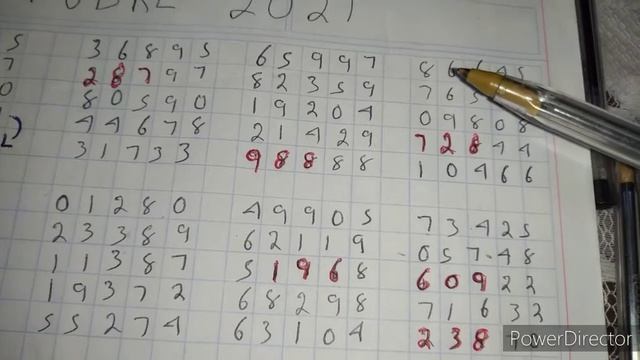 2021
5 3 6 8 9 5 6 5 9 9 7 8 6 6 4 5
7 2 8 7 9 7 8 2 3 5 9 7 6 5
0 8 0 5 9 0 1 9 2 0 4 0 9 8 0 8
4 4 6 7 8 2 1 4 2 9 7 2 8 4 4
3 1 7 3 3 9 8 8 8 8 1 0 4 6 6
0 1 2 8 0 4 9 9 0 5 7 3 4 2 5
2 3 3 8 9 6 2 1 1 9 0 5 7 4 8
1 1 3 8 7 5 1 9 6 8 6 0 9 2 2
1 9 3 7 2 6 8 2 9 8 7 1 6 3 2
5 5 2 7 4 6 3 1 0 4 2 3 8
PowerDirector